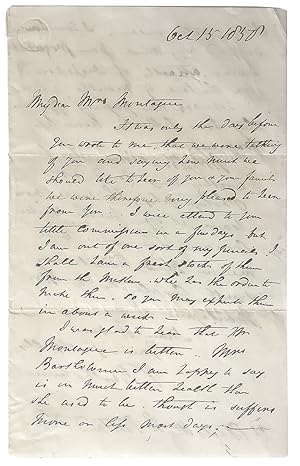 Oct 15 1858
My dear Mrs Montague
It was only the day before
you wrote to me, that we were talking
of you and saying how much we
should like to hear of you & your family
we were therefore very pleased to hear
from you. I will attend to your
little Commission in a few days. but
I am out of one sort of my
shall have a fresh stock of them
from the Maker. who has the order to
make them. so you may expect them
in about a week.
I was glad to hear that Mr
Montague is better. Mrs
Bartholomew I am happy to say
is in much better health than
she used to be. though is suffers
more or less most days;